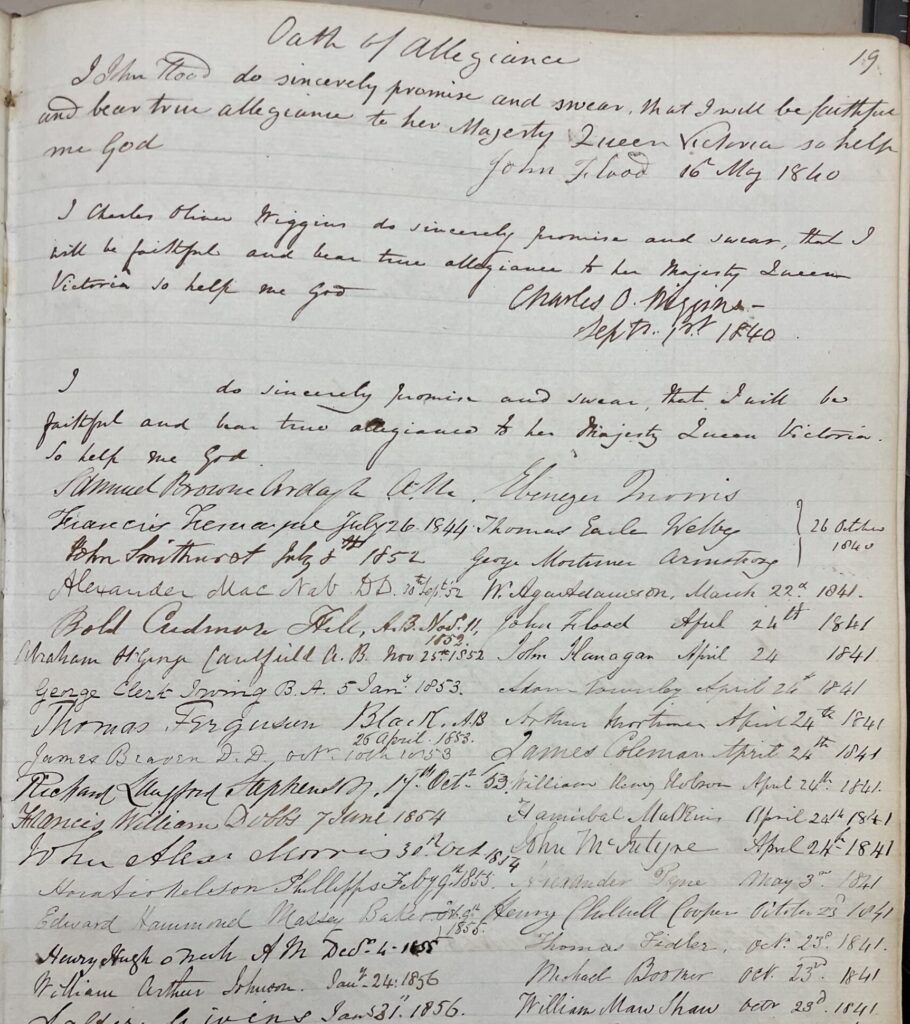 Oath of Allegiance
19
I John Flood do sincerely promise and swear, that I will be faithful
and bear true allegiance to her Majesty Queen Victoria so help
me God
John Flood 16 May 1840
I Charles Oliver Wiggins do sincerely promise and swear, that I
will be faithful and bear true allegiance to her Majesty Queen
Victoria so help me God
Charles O. Wiggins
Septr. 1st 1840
I do sincerely promise and swear, that I will be
faithful and bear true allegiance to her Majesty Queen Victoria.
So help me God
Samuel Browne Ardagh A.M.
Francis July 26. 1844
John Smithurst July 8th 1852
Alexander Mac Nab D.D. 30th Sept 52
Bold Cudmore Hill, A.B. Novr. 11, 1852.
Abraham St George Caulfield A.B. Nov 25th 1852
George Clerk Irving B.A. 5 Jany. 1853.
Thomas Ferguson Black, AB
26 April. 1853.
James Beaven D.D., Octr. 10th 1853
Richard Stephenson, 17th Octr. 53
Francis William Dobbs 7 June 1854
John Alexr Morris 30th Oct 1854
Horatio Nelson Phillipps Feby 9th 1855
Edward Hammond Massey Baker 1855.
Henry Hugh A M Decr. 4. 1855
William Arthur Johnson. Jany. 24. 1856
Givins Jan 31st. 1856.
Ebenezer Morris
Thomas Earle Welby
George Mortimer Armstrong
26 October
1840
W. Agar Adamson, March 22d 1841.
John Flood April 24th 1841
John Flanagan April 24 1841
Adam Townley April 24th 1841
Arthur Mortimer April 24th 1841
James Coleman April 24th 1841
William Henry Hobson April 24th 1841.
Hannibal Mulkins April 24th 1841
John McIntyre April 24th 1841
Alexander Pyne May 3rd 1841
Henry Cooper October 23 1841
Thomas Fidler, Octr. 23d. 1841.
Michael Boomer Oct 23rd 1841
William Maw Shaw Octr 23d. 1841.